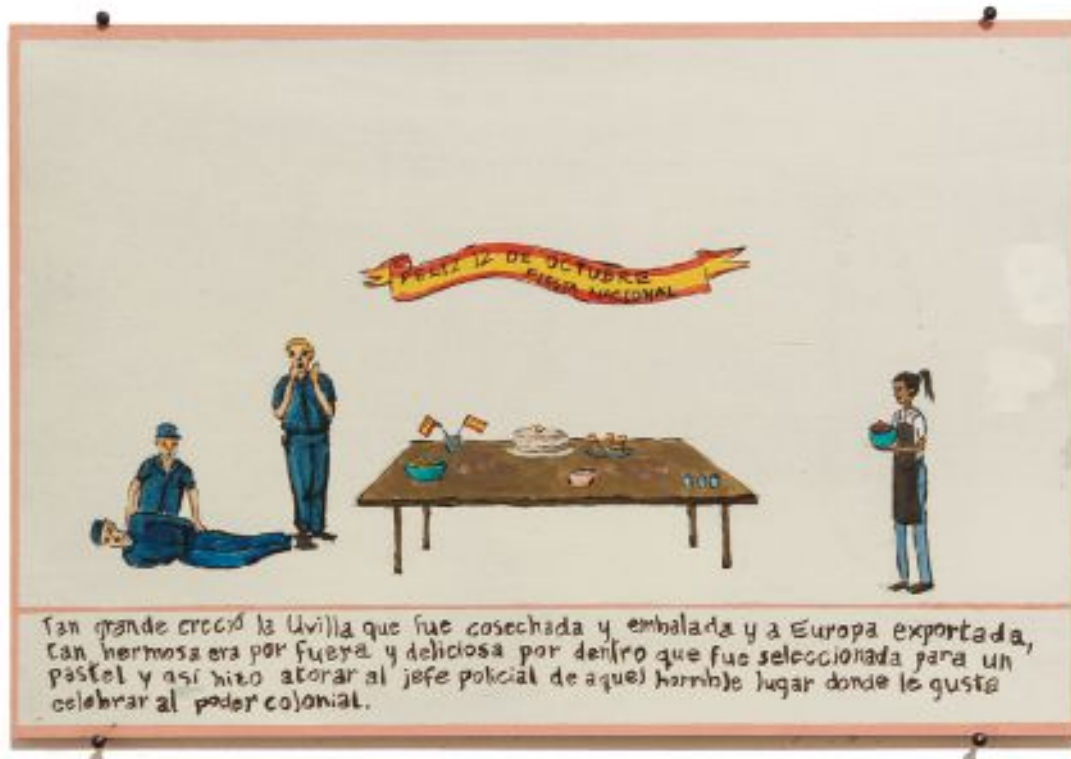 FELIZ 12 DE OCTUBRE
FIESTA NACIONAL
Tan grande creció la Uvilla que fue cosechada y embalada y a Europa exportada,
tan hermosa era por fuera y deliciosa por dentro que fue seleccionada para un
pastel y así hizo atorar al jefe policial de aquel horrible lugar donde le gusta
celebrar al poder colonial.